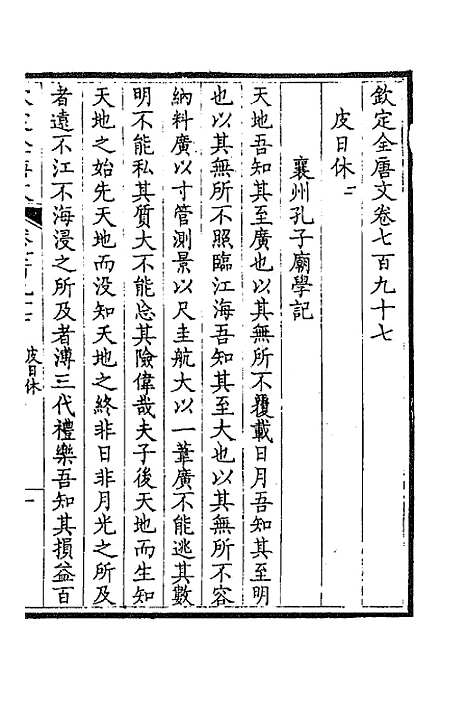 欽定全唐文卷七百九十七
皮日休二
襄州孔子廟學記
天地吾知其至廣也以其無所不覆載日月吾知其至明
也以其無所不照臨江海吾知其至大也以其無所不容
納料廣以寸管測景以尺圭航大以一葦廣不能逃其數
明不能私其質大不能忘其險偉哉夫子後天地而生知
天地之始先天地而没知天地之終非日非月光之所及
者遠不江不海浸之所及者溥三代禮樂吾知其損益百
皮日休
一